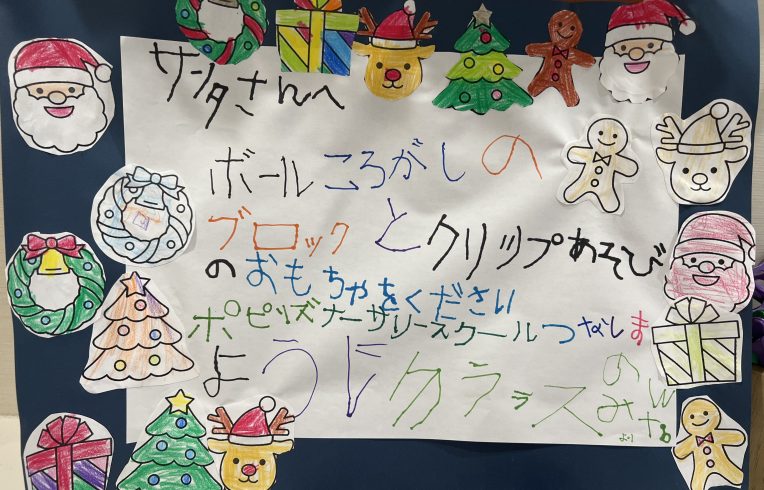 サンタさんへ
ボールころがしの
ブロックとクリップあそび
のおもちゃをください
ポピンズナーサリースクールつなしま
ようじクララスのみんな
より